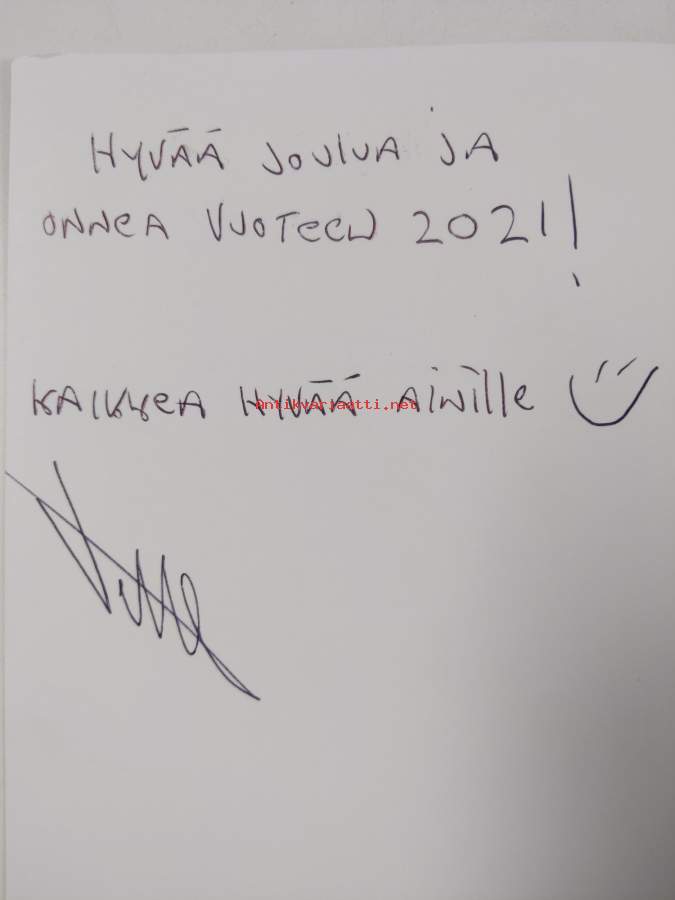 HYVÄÄ JOULUA JA
ONNEA VUOTEEN 2021!
KAIKKEA HYVÄÄ AINILLE
Antikvariaatti.net
Ville